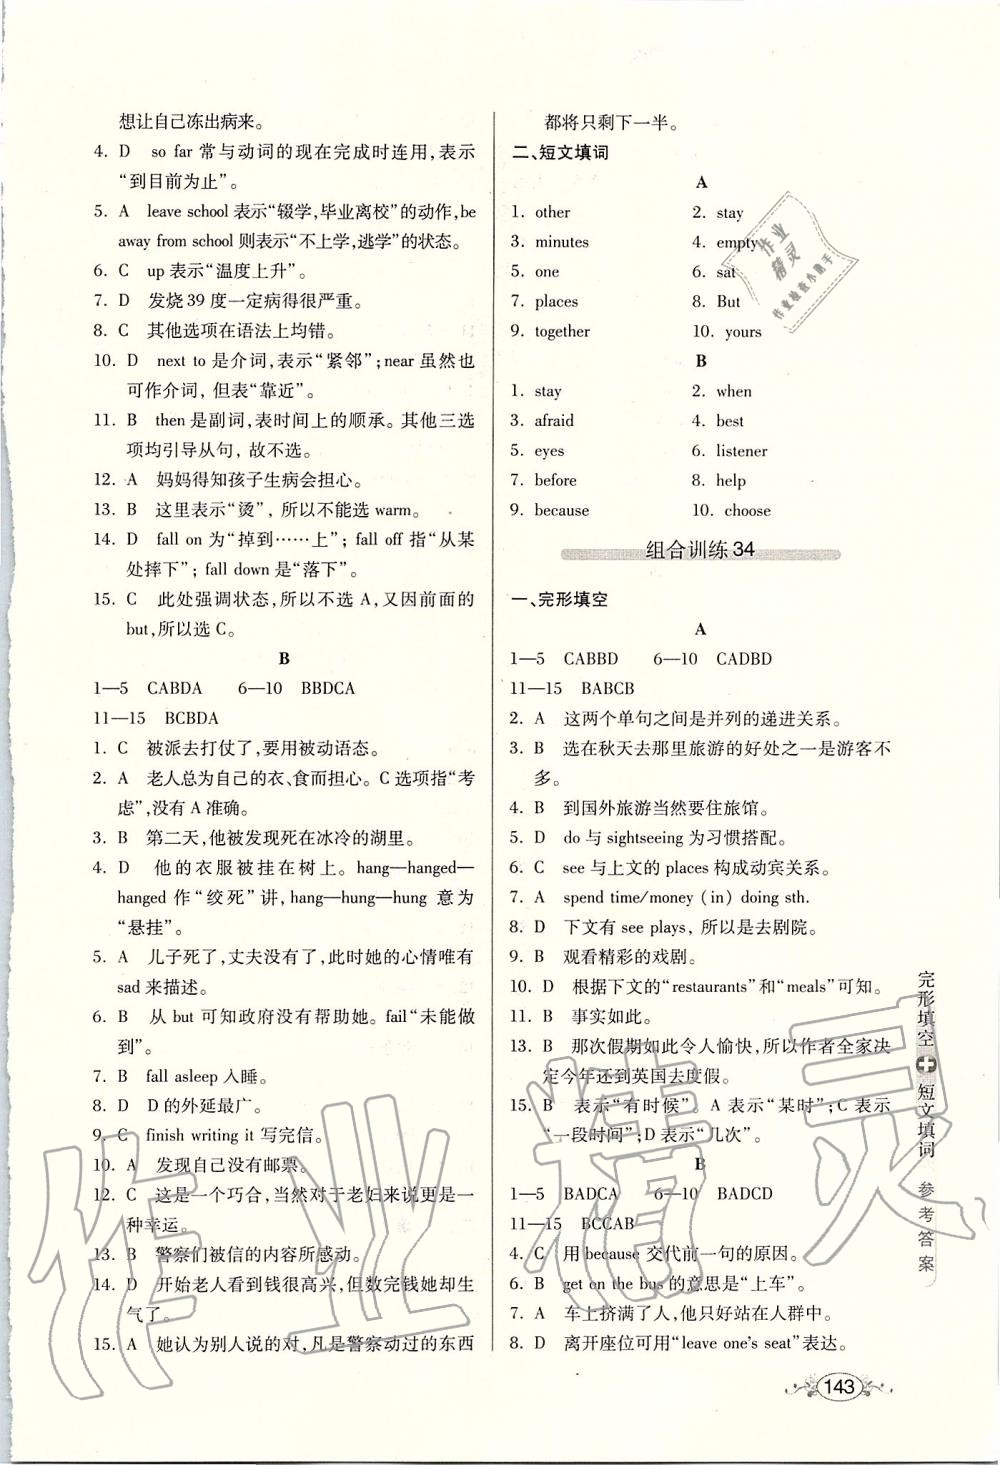 想让自己冻出病来。
4. D so far 常与动词的现在完成时连用,表示
“到目前为止”。
5. A leave school 表示“辍学,毕业离校”的动作,be
away from school 则表示“不上学,逃学”的状态。
6. C up 表示“温度上升”。
7. D 发烧 39 度一定病得很严重。
8. C 其他选项在语法上均错。
10. D next to 是介词,表示“紧邻”;near 虽然也
可作介词, 但表“靠近”。
11. B then 是副词,表时间上的顺承。其他三选
项均引导从句, 故不选。
12. A 妈妈得知孩子生病会担心。
13. B 这里表示“烫”, 所以不能选 warm。
14. D fall on 为“掉到……上”; fall off 指“从某
处摔下”; fall down 是“落下”。
15. C 此处强调状态,所以不选 A,又因前面的
but,所以选 C。
B
1—5 CABDA 6—10 BBDCA
11—15 BCBDA
1. C 被派去打仗了,要用被动语态。
2. A 老人总为自己的衣、食而担心。C 选项指“考
虑”,没有 A 准确。
3. B 第二天,他被发现死在冰冷的湖里。
4. D 他的衣服被挂在树上。hang—hanged—
hanged 作“绞死”讲,hang—hung—hung 意为
“悬挂”。
5. A 儿子死了,丈夫没有了,此时她的心情唯有
sad 来描述。
6. B 从 but 可知政府没有帮助她。fail“未能做
到”。
7. B fall asleep 入睡。
8. D D 的外延最广。
9. C finish writing it 写完信。
10. A 发现自己没有邮票。
12. C 这是一个巧合,当然对于老妇来说更是一
种幸运。
13. B 警察们被信的内容所感动。
14. D 开始老人看到钱很高兴,但数完钱她却生
气了。
15. A 她认为别人说的对,凡是警察动过的东西
都将只剩下一半。
二、短文填词
A
1. other 2. stay
3. minutes 4. empty
5. one 6. sat
7. places 8. But
9. together 10. yours
B
1. stay 2. when
3. afraid 4. best
5. eyes 6. listener
7. before 8. help
9. because 10. choose
组合训练 34
一、完形填空
A
1—5 CABBD 6—10 CADBD
11—15 BABCB
2. A 这两个单句之间是并列的递进关系。
3. B 选在秋天去那里旅游的好处之一是游客不
多。
4. B 到国外旅游当然要住旅馆。
5. D do 与 sightseeing 为习惯搭配。
6. C see 与上文的 places 构成动宾关系。
7. A spend time/money (in) doing sth.
8. D 下文有 see plays, 所以是去剧院。
9. B 观看精彩的戏剧。
10. D 根据下文的“restaurants”和“meals”可知。
11. B 事实如此。
13. B 那次假期如此令人愉快,所以作者全家决
定今年还到英国去度假。
15. B 表示“有时候”。A 表示“某时”;C 表示
“一段时间”;D 表示“几次”。
B
1—5 BADCA 6—10 BADCD
11—15 BCCAB
4. C 用 because 交代前一句的原因。
6. B get on the bus 的意思是“上车”。
7. A 车上挤满了人,他只好站在人群中。
8. D 离开座位可用“leave one's seat”表达。
完形填空+短文填词 参考答案
143
作业精灵
作业精灵
作业检查小助手